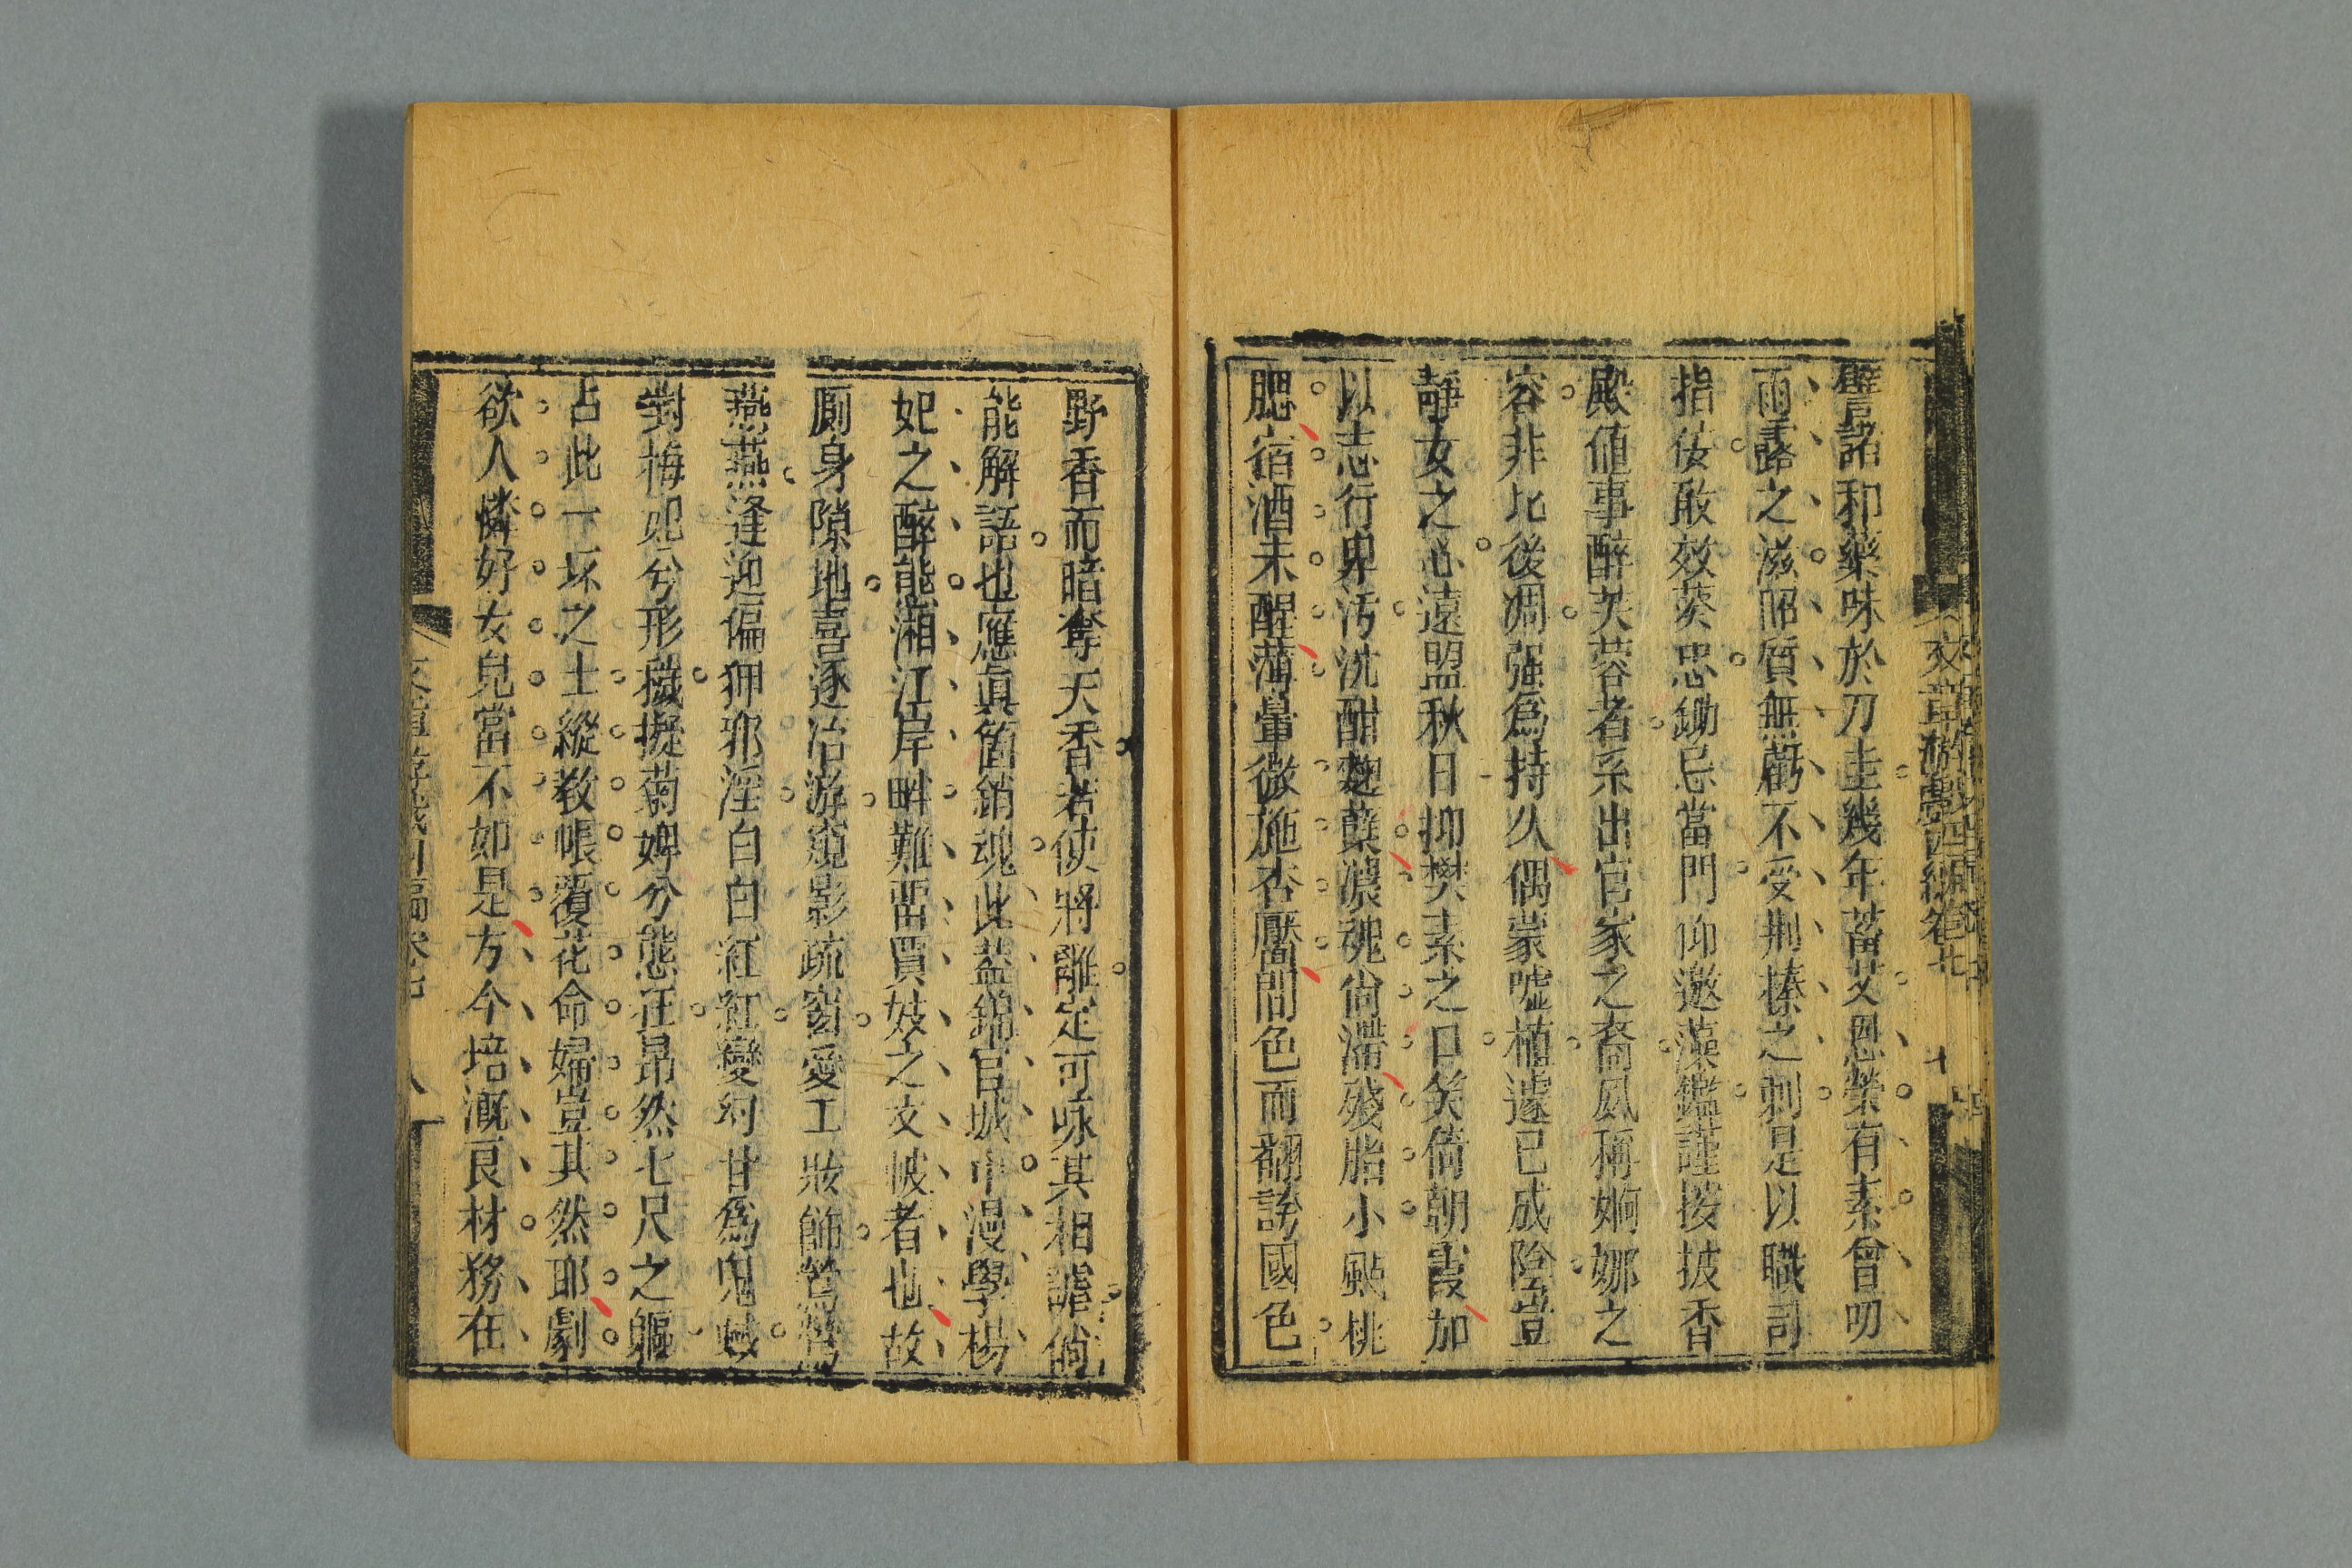 文章游戲四編卷七
譬詔和藥味於刀圭幾年蓄艾恩榮有素曾叨
雨露之滋昭質無虧不受荆榛之刺是以職司
指佞敢效葵忠鋤忌當門仰邀藻鑑謹按披香
殿値事醉芙蓉者系出官家之裔風稱婀娜之
容非比後凋强爲持久偶蒙噓植遽已成陰豈
靜女之心遠盟秋日抑樊素之口笑倚朝霞加
以志行卑汚沈酣麴蘖濃魂尙滯殘脂小颭桃
腮宿酒未醒薄暈微施杏靨間色而翻誇國色
野香而暗奪天香若使將離定可咏其相謔倘
能解語也應眞箇銷魂此葢錦官城中漫學楊
妃之醉態湘江岸畔難畱賈妓之文帔者也故
厠身隙地喜逐冶游窺影疏窗愛工妝飾鶯鶯
燕燕逢迎偏狎邪淫白白紅紅變幻甘爲鬼蜮
對梅兄兮形穢擬菊婢兮態在昻然七尺之軀
占此一坏之土縱教帳覆花命婦豈其然耶劇
欲人憐好女兒當不如是方今培漑良材務在